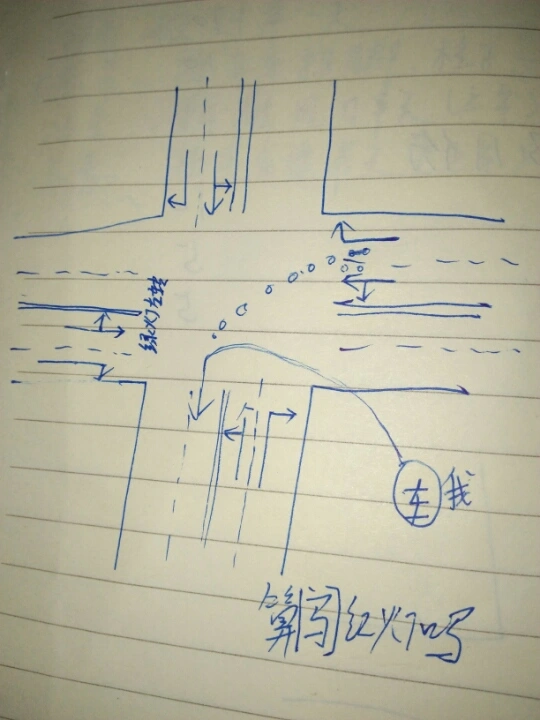 绿灯左转
车 我
算闯红灯吗